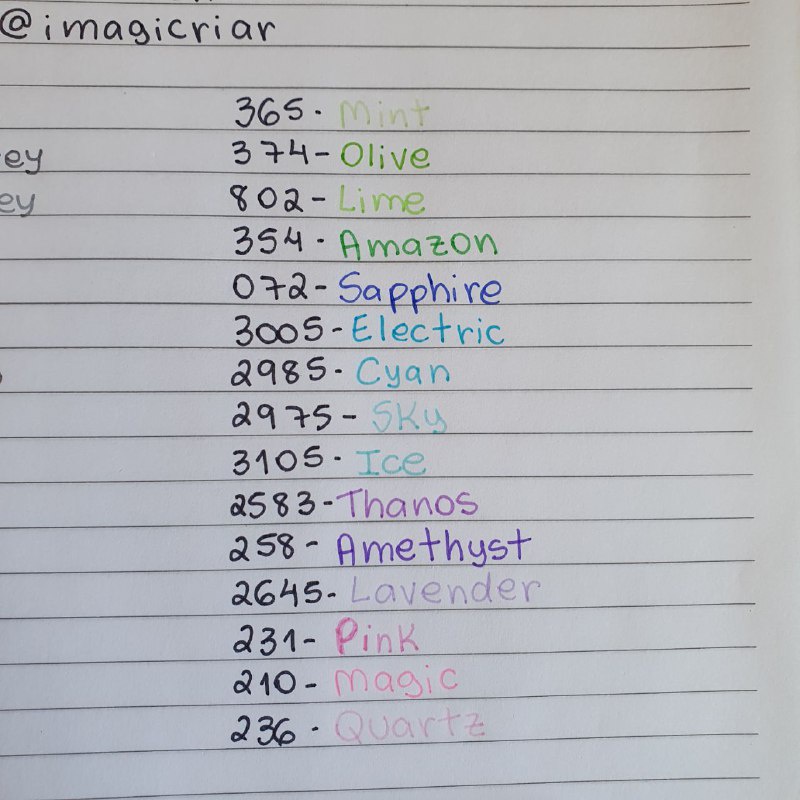 @imagicriar
365. Mint
ey 374-Olive
ey 802-Lime
354. Amazon
072-Sapphire
3005-Electric
2985. Cyan
2975- Sky
3105. Ice
2583-Thanos
258- Amethyst
2645. Lavender
231- Pink
210- Magic
236. Quartz